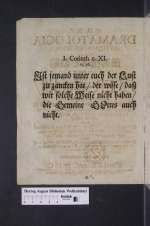 1. Corinth. c. XI.
Ist jemand unter euch der Lust
zu zancken hat / der wisse / daß
wir solche Weise nicht haben /
die Gemeine GOttes auch
nicht.
Herzog August Bibliothek Wolfenbüttel